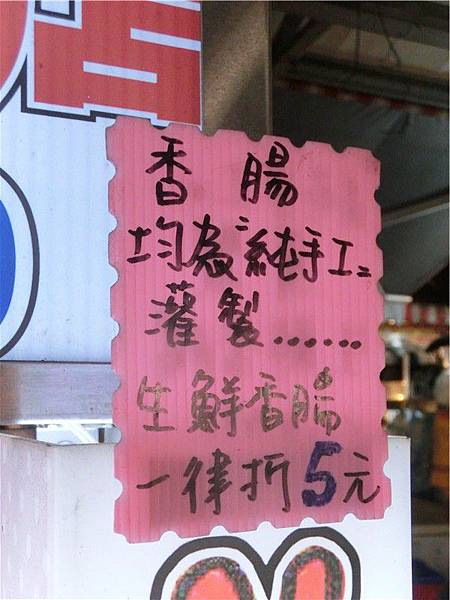 香腸
均為"純手工"
灌製......
生鮮香腸
一律折5元